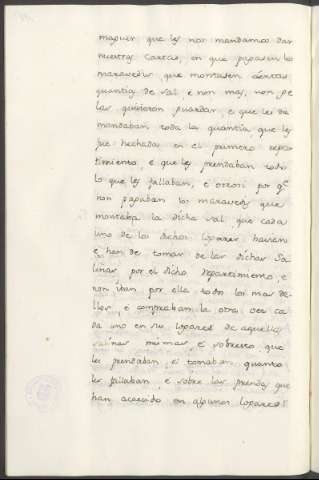 maguer que les nos mandamos dar
nuestras cartas, en que pagasen los
maravedis, que montasen ciertas
quantias de sal e non mas, non ge
las quisieron guardar, e que les de
mandaban toda la quantia que les
fue hechada en el primero repar
timiento, e que les prendaban todo
lo que les fallaban, e otrosi por qe
non pagaban los maravedis que
montaba la dicha sal, que cada
uno de los dichos logares havian
e han de tomar de las dichas sa
linas, por el dicho repartimiento, e
non iban por ella todos los mas de
llos, e compraban la otra vez ca
da uno en su logares de aquellas
salinas mesmas, e sobresto que
les prendaban, e tomaban quanto
les fallaban, e sobre las prendas que
han acaecido en algunos logares